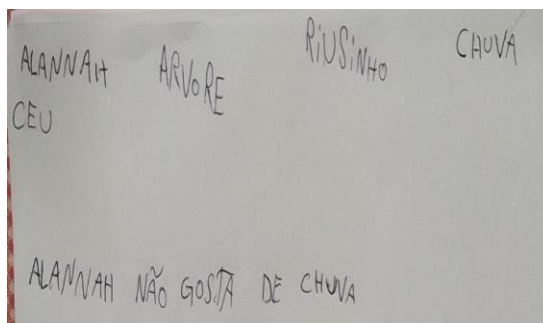 ALANNAH ARVORE RIUSINHO CHUVA
CEU
ALANNAH NÃO GOSTA DE CHUVA